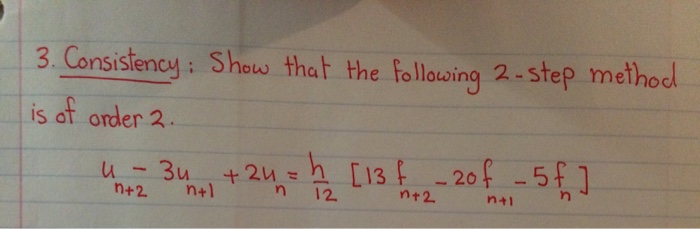 3. Consistency: Show that the following 2-step method
is of order 2.
u_{n+2} - 3u_{n+1} + 2u_n = h/12 [13 f_{n+2} - 20f_{n+1} - 5f_n]